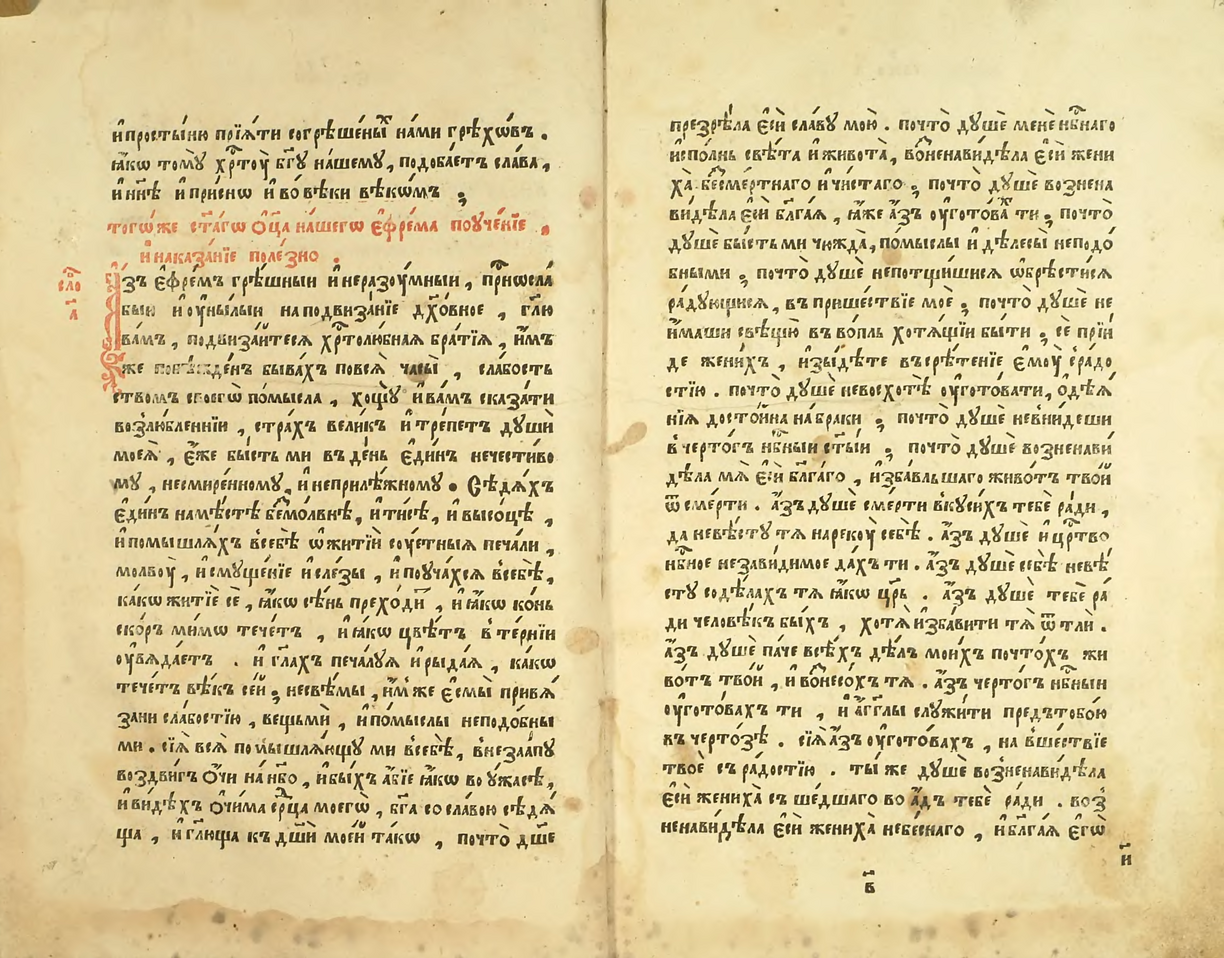 и҆просты́ню прїѧ́ти согрѣше́ны̑ на́ми грѣхѡ́въ .
ꙗ҆́кѡ томꙋ̀ хр҃тоу̀ бг҃ꙋ на́шемꙋ , подоба́етъ сла́ва ,
и҆ нн҃ѣ и҆ при́снѡ и҆ во вѣ́ки вѣкѡ́мъ ;
тогѡ́же ст҃а́гѡ ѻ҆ц҃а на́шегѡ є҆фре́ма поꙋче́нїе ,
и҆ наказа́нїе поле́зно .
сло́
а҃
А҆зъ є҆фре́мъ грѣ́шныи и҆ неразоу́мныи , при́ѡсла
быи и҆ оу҆ны́лыи на подвиза́нїе дх҃о́вное , гл҃ю
ва́мъ , подвиза́итесѧ хр҃толю́бнаѧ бра́тїѧ , и҆́мъ
же побѣжде́нъ быва́хъ по всѧ̀ часы̀ , сла́бость
ство́мъ своегѡ̀ по́мысла , хощꙋ̀ и҆ ва́мъ сказа́ти
возлю́бленнїи , стра́хъ вели́къ и҆ тре́петъ дꙋшѝ
моеѧ̀ , є҆́же бы́сть ми въ де́нь є҆ди́нъ нечести́во
мꙋ , несмире́нномꙋ , и҆ неприлѣ́жномꙋ . Сѣдѧ́хъ
є҆ди́нъ на мѣ́стѣ безмо́лвнѣ , и҆ ти́сѣ , и҆ высо́цѣ ,
и҆ помышлѧ́хъ в̾себѣ̀ ѡ҆ житїѝ соу́етныѧ печа́ли ,
молво́у , и҆ смꙋще́нїе и҆ сле́зы , и҆ поꙋча́хсѧ в̾себѣ̀ ,
ка́кѡ житїѐ сѐ , ꙗ҆́кѡ сѣ́нь прехо́ди , и҆ ꙗ҆́кѡ ко́нь
ско́ръ ми́мѡ тече́тъ , и҆ ꙗ҆́кѡ цвѣ́тъ в̾ те́рнїи
оу҆вѧда́етъ . и҆ гл҃ахъ печа́лꙋѧ и҆ рыда́ѧ , ка́кѡ
тече́тъ вѣ́къ се́и ; несвѣ́мы , и҆́мже є҆смы̀ привѧ́
зани сла́бостїю , ве́щьми , и҆ по́мыслы неподо́бны
ми . сїѧ̀ всѧ̀ помышлѧ́ющꙋ ми в̾себѣ̀ , в̾незаа́пꙋ
воздви́гъ ѻ҆́чи на нб҃о , и҆ бы́хъ а҆́бїе ꙗ҆́кѡ во ᲂу҆́жасѣ ,
и҆ ви́дѣхъ ѻ҆чи́ма ср҃ца моегѡ̀ , бг҃а со сла́вою сѣдѧ́
ща , и҆ гл҃юща къ дш҃и мое́и та́кѡ , почто̀ дш҃е
презрѣ́ла є҆сѝ сла́вꙋ мою̀ . почто̀ дꙋшѐ менѐ нб҃наго
и҆спо́лнь свѣ́та и҆ живота̀ , возненави́дѣла є҆сѝ жени
ха̀ безсме́ртнаго и҆ чи́стаго ; почто̀ дꙋшѐ возне́на
ви́дѣла є҆сѝ бл҃га́ѧ , ꙗ҆́же а҆́зъ оу҆гото́ва ти ; почто̀
дꙋшѐ бы́сть ми чюжда̀ , по́мыслы и҆ дѣлесы̀ неподо́
бными ; почто̀ дꙋшѐ непотщи́шисѧ ѡ҆брѣсти́сѧ
ра́дꙋющисѧ , въ прише́ствїе моѐ ; почто̀ дꙋшѐ не
и҆́маши свѣщю̀ в̾ во́пль хотѧ́щїи бы́ти ; сѐ прїи́
де жени́хъ , и҆зыди́те въ срѣ́тенїе є҆моу̀ с̾ ра́до
стїю . почто̀ дꙋшѐ невосхотѣ̀ оу҆гото́вати , ѻ҆дѣѧ́
нїѧ досто́ина на бра́ки ; почто̀ дꙋшѐ нев̾ни́деши
в̾ черто́гъ нб҃ныи ст҃ы́и ; почто̀ дꙋшѐ возненави́
дѣла мѧ̀ є҆сѝ бл҃га́го , и҆зба́вльшаго живо́тъ твои̑
ѿ сме́рти . а҆́зъ дꙋшѐ сме́рти вкꙋси́хъ тебѐ ра́ди ,
да невѣ́стꙋ тѧ̀ нарекоу̀ себѣ̀ . а҆́зъ дꙋшѐ и҆ цр҃тво
нб҃ное незави́димое да́хъ ти . а҆́зъ дꙋшѐ себѣ̀ невѣ́
стꙋ содѣ́лахъ тѧ̀ ꙗ҆́кѡ цр҃ь . а҆́зъ дꙋшѐ тебѐ ра́
ди человѣ́къ бы́хъ , хотѧ̀ и҆зба́вити тѧ̀ ѿ тли̑ .
а҆́зъ дꙋшѐ па́че всѣ́хъ дѣ́лъ мои́хъ почто́хъ жи
во́тъ тво́и , и҆ вознесо́хъ тѧ̀ . а҆́зъ черто́гъ нб҃ныи
оу҆гото́вахъ ти , и҆ а҆́гг҃лы слꙋжи́ти предъ тобо́ю
въ черто́зѣ . сїѧ̀ а҆́зъ оу҆гото́вахъ , на в̾ше́ствїе
твоѐ съ ра́достїю . ты́ же дꙋшѐ возненави́дѣла
є҆сѝ жениха̀ съ ше́дшаго во а҆́дъ тебѐ ра́ди . воз̾
ненави́дѣла є҆сѝ жениха̀ небе́снаго , и҆ бл҃га́ѧ є҆гѡ̀
и҃
в҃